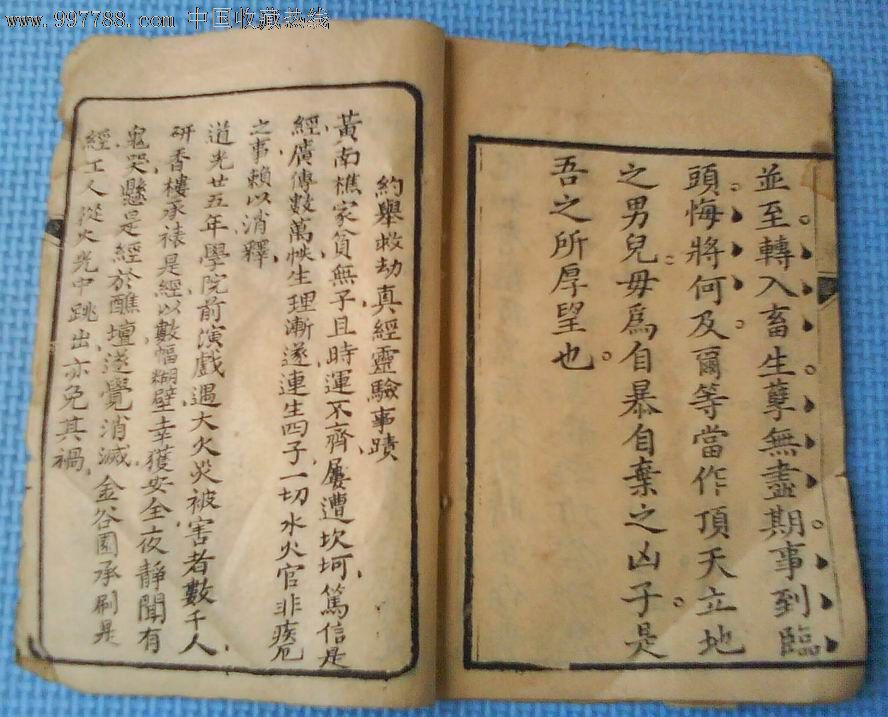 www.997788.com 中国收藏热线
並至轉入畜生孽無盡期。事到臨
頭。悔將何及。爾等當作頂天立地
之男兒。毋爲自暴自棄之凶子。是
吾之所厚望也。
約舉救劫真經靈驗事蹟
黃南樵家貧無子且時運不齊屢遭坎坷、篤信是
經、廣傳數萬帙生理漸遂連生四子一切水火官非疾厄
之事、賴以消釋、
道光廿五年學院前演戲遇大火災被害者數千人、
研香樓承裱是經以數幅糊壁幸獲安全夜靜聞有
鬼哭、懸是經於醮壇遂覺消滅、金谷園承刷是
經工人從火光中跳出亦免其禍、